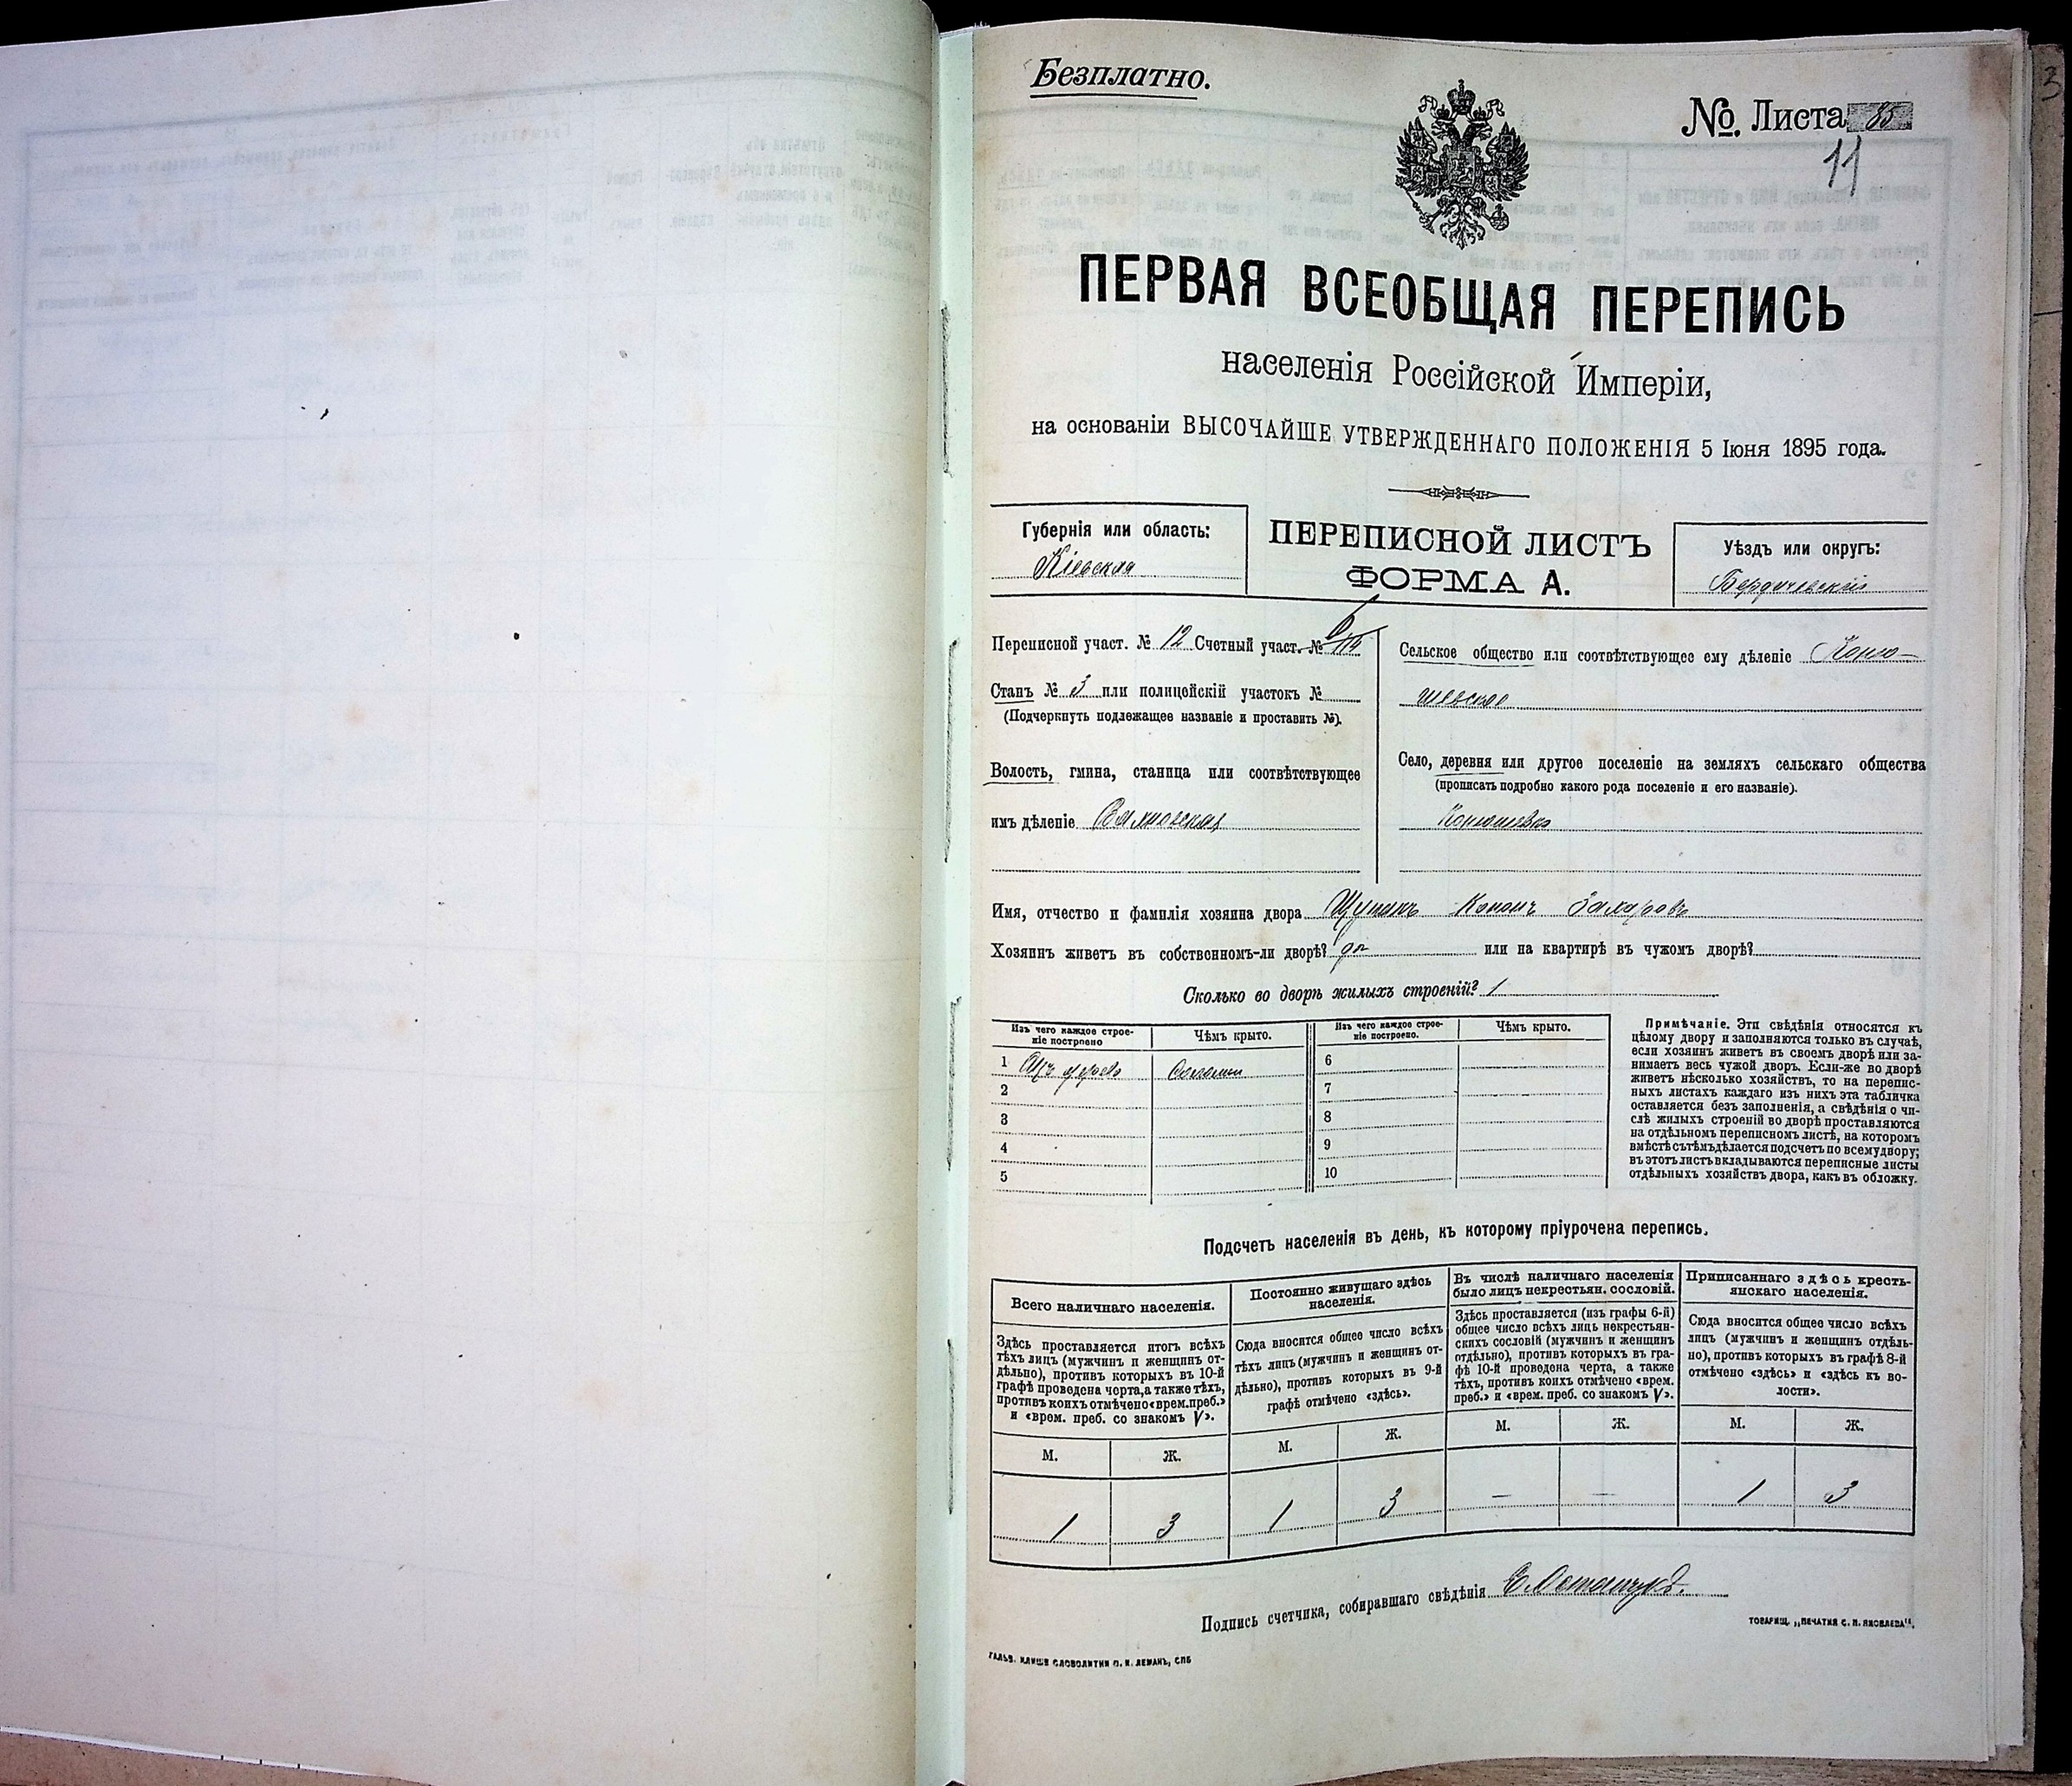 Безплатно.
№ Листа 85
11
3
ПЕРВАЯ ВСЕОБЩАЯ ПЕРЕПИСЬ
населенія Россійской Имперіи,
на основаніи ВЫСОЧАЙШЕ УТВЕРЖДЕННАГО ПОЛОЖЕНІЯ 5 Іюня 1895 года.
Губернія или область:
Кіевская
ПЕРЕПИСНОЙ ЛИСТЪ
ФОРМА А.
Уѣздъ или округъ:
Бердичевскій
Переписной участ. № 12 Счетный участ. №
Станъ № 3 или полицейскій участокъ №
(Подчеркнуть подлежащее названіе и проставить №).
Волость, гмина, станица или соотвѣтствующее
имъ дѣленіе
Сельское общество или соотвѣтствующее ему дѣленіе Коню-
шевское
Село, деревня или другое поселеніе на земляхъ сельскаго общества
(прописать подробно какого рода поселеніе и его названіе).
Конюшевка
Имя, отчество и фамилія хозяина двора Щупакъ Кононъ Захаровъ
Хозяинъ живетъ въ собственномъ-ли дворѣ? да или на квартирѣ въ чужомъ дворѣ?
Сколько во дворѣ жилыхъ строеній? 1
Изъ чего каждое строе-
ніе построено
Чѣмъ крыто.
Изъ чего каждое строе-
ніе построено.
Чѣмъ крыто.
1 Изъ дерева Соломы
2
3
4
5
6
7
8
9
10
Примѣчаніе. Эти свѣдѣнія относятся къ
цѣлому двору и заполняются только въ случаѣ,
если хозяинъ живетъ въ своемъ дворѣ или за-
нимаетъ весь чужой дворъ. Если-же во дворѣ
живетъ нѣсколько хозяйствъ, то на перепис-
ныхъ листахъ каждаго изъ нихъ эта табличка
оставляется безъ заполненія, а свѣдѣнія о чи-
слѣ жилыхъ строеній во дворѣ проставляются
на отдѣльномъ переписномъ листѣ, на которомъ
вмѣстѣ съ тѣмъ дѣлается подсчетъ по всему двору;
въ этотъ листъ вкладываются переписные листы
отдѣльныхъ хозяйствъ двора, какъ въ обложку.
Подсчетъ населенія въ день, къ которому пріурочена перепись.
Всего наличнаго населенія.
Здѣсь проставляется итогъ всѣхъ
тѣхъ лицъ (мужчинъ и женщинъ от-
дѣльно), противъ которыхъ въ 10-й
графѣ проведена черта, а также тѣхъ,
противъ коихъ отмѣчено «врем. преб.»
и «врем. преб. со знакомъ V».
М. Ж.
1 3
Постоянно живущаго здѣсь
населенія.
Сюда вносится общее число всѣхъ
тѣхъ лицъ (мужчинъ и женщинъ от-
дѣльно), противъ которыхъ въ 9-й
графѣ отмѣчено «здѣсь».
М. Ж.
1 3
Въ числѣ наличнаго населенія
было лицъ некрестьян. сословій.
Здѣсь проставляется (изъ графы 6-й)
общее число всѣхъ лицъ некрестьян-
скихъ сословій (мужчинъ и женщинъ
отдѣльно), противъ которыхъ въ гра-
фѣ 10-й проведена черта, а также
тѣхъ, противъ коихъ отмѣчено «врем.
преб.» и «врем. преб. со знакомъ V».
М. Ж.
— —
Приписаннаго здѣсь кресть-
янскаго населенія.
Сюда вносится общее число всѣхъ
лицъ (мужчинъ и женщинъ отдѣль-
но), противъ которыхъ въ графѣ 8-й
отмѣчено «здѣсь» и «здѣсь къ во-
лости».
М. Ж.
1 3
Подпись счетчика, собиравшаго свѣдѣнія
ТОВАРИЩ. „ПЕЧАТНЯ С. П. ЯКОВЛЕВА".
ГАЛЬВ. КЛИШЕ СЛОВОЛИТНИ О. И. ЛЕМАНЪ, СПБ